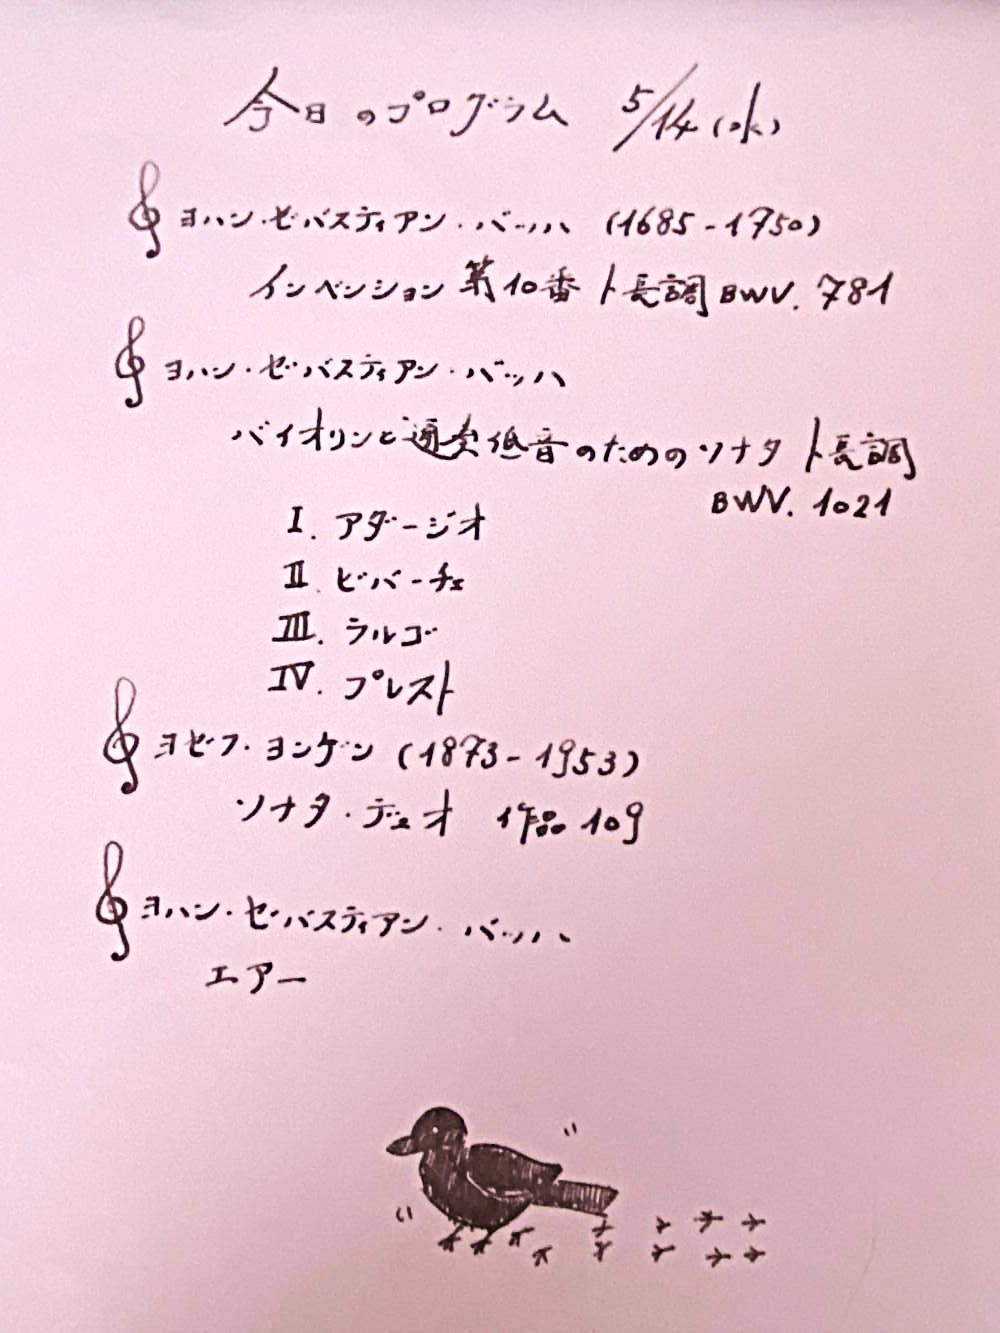 今日のプログラム 5/14(水)
ヨハン・ゼバスティアン・バッハ (1685-1750)
インベンション 第10番 ト長調 BWV. 781
ヨハン・ゼバスティアン・バッハ
バイオリンと通奏低音のためのソナタ ト長調
BWV. 1021
I. アダージオ
II. ビバーチェ
III. ラルゴ
IV. プレスト
ヨゼフ・ヨンゲン (1873-1953)
ソナタ・デュオ 作品109
ヨハン・ゼバスティアン・バッハ
エアー